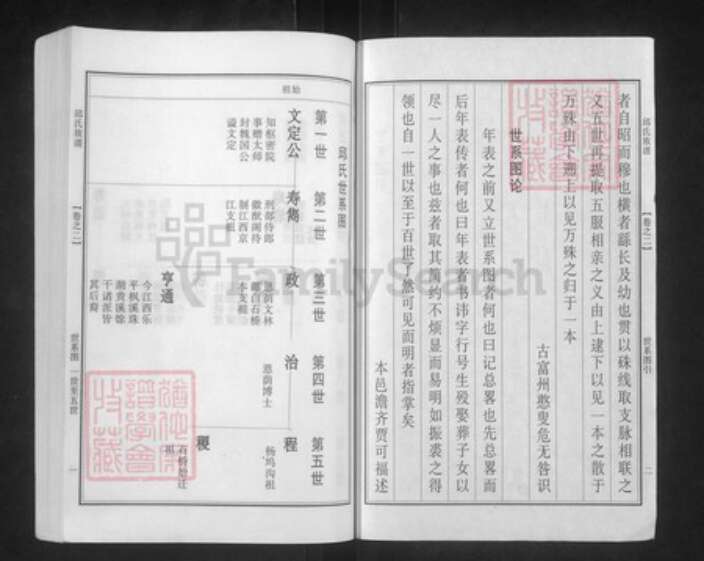 邱氏族谱
【卷之二】
世系图引
二
者自昭而穆也横者繇长及幼也贯以硃线取支脉相联之
又五世再提取五服相亲之义由上逮下以见一本之散于
万殊由下遡上以见万殊之归于一本
古富州憨叟危无咎识
世系图论
年表之前又立世系图者何也曰记总畧也先总畧而
后年表传者何也曰年表者书讳字行号生殁娶葬子女以
尽一人之事也兹者取其简约不烦显而易明如振裘之得
领也自一世以至于百世了然可见而明者指掌矣
本邑澹齐贾可福述
邱氏世系图
始祖
第一世
第二世
第三世
第四世
第五世
文定公
知枢密院
事赠太师
封魏国公
谥文定
寿雋
刑部侍郎
徽猷阁待
制江西京
江支祖
政
恩荫文林
郎白石桥
本支祖
治
恩荫博士
程
杨坞沟祖
亨通
今江西乐
平枫溪珠
湖黄溪馀
干诸派皆
其后裔
稷
石桥始迁
祖
邱氏族谱
【卷之二】
世系图 一世至五世
一
FamilySearch